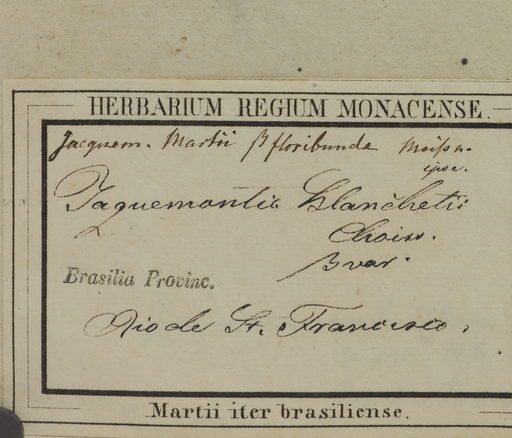 HERBARIUM REGIUM MONACENSE.
Jacquem. Martii β floribunda Meisn.
ipse.
Jaquemontia Blanchetii
Choiss.
β var.
Brasilia Provinc.
Rio de St. Francisco.
Martii iter brasiliense.